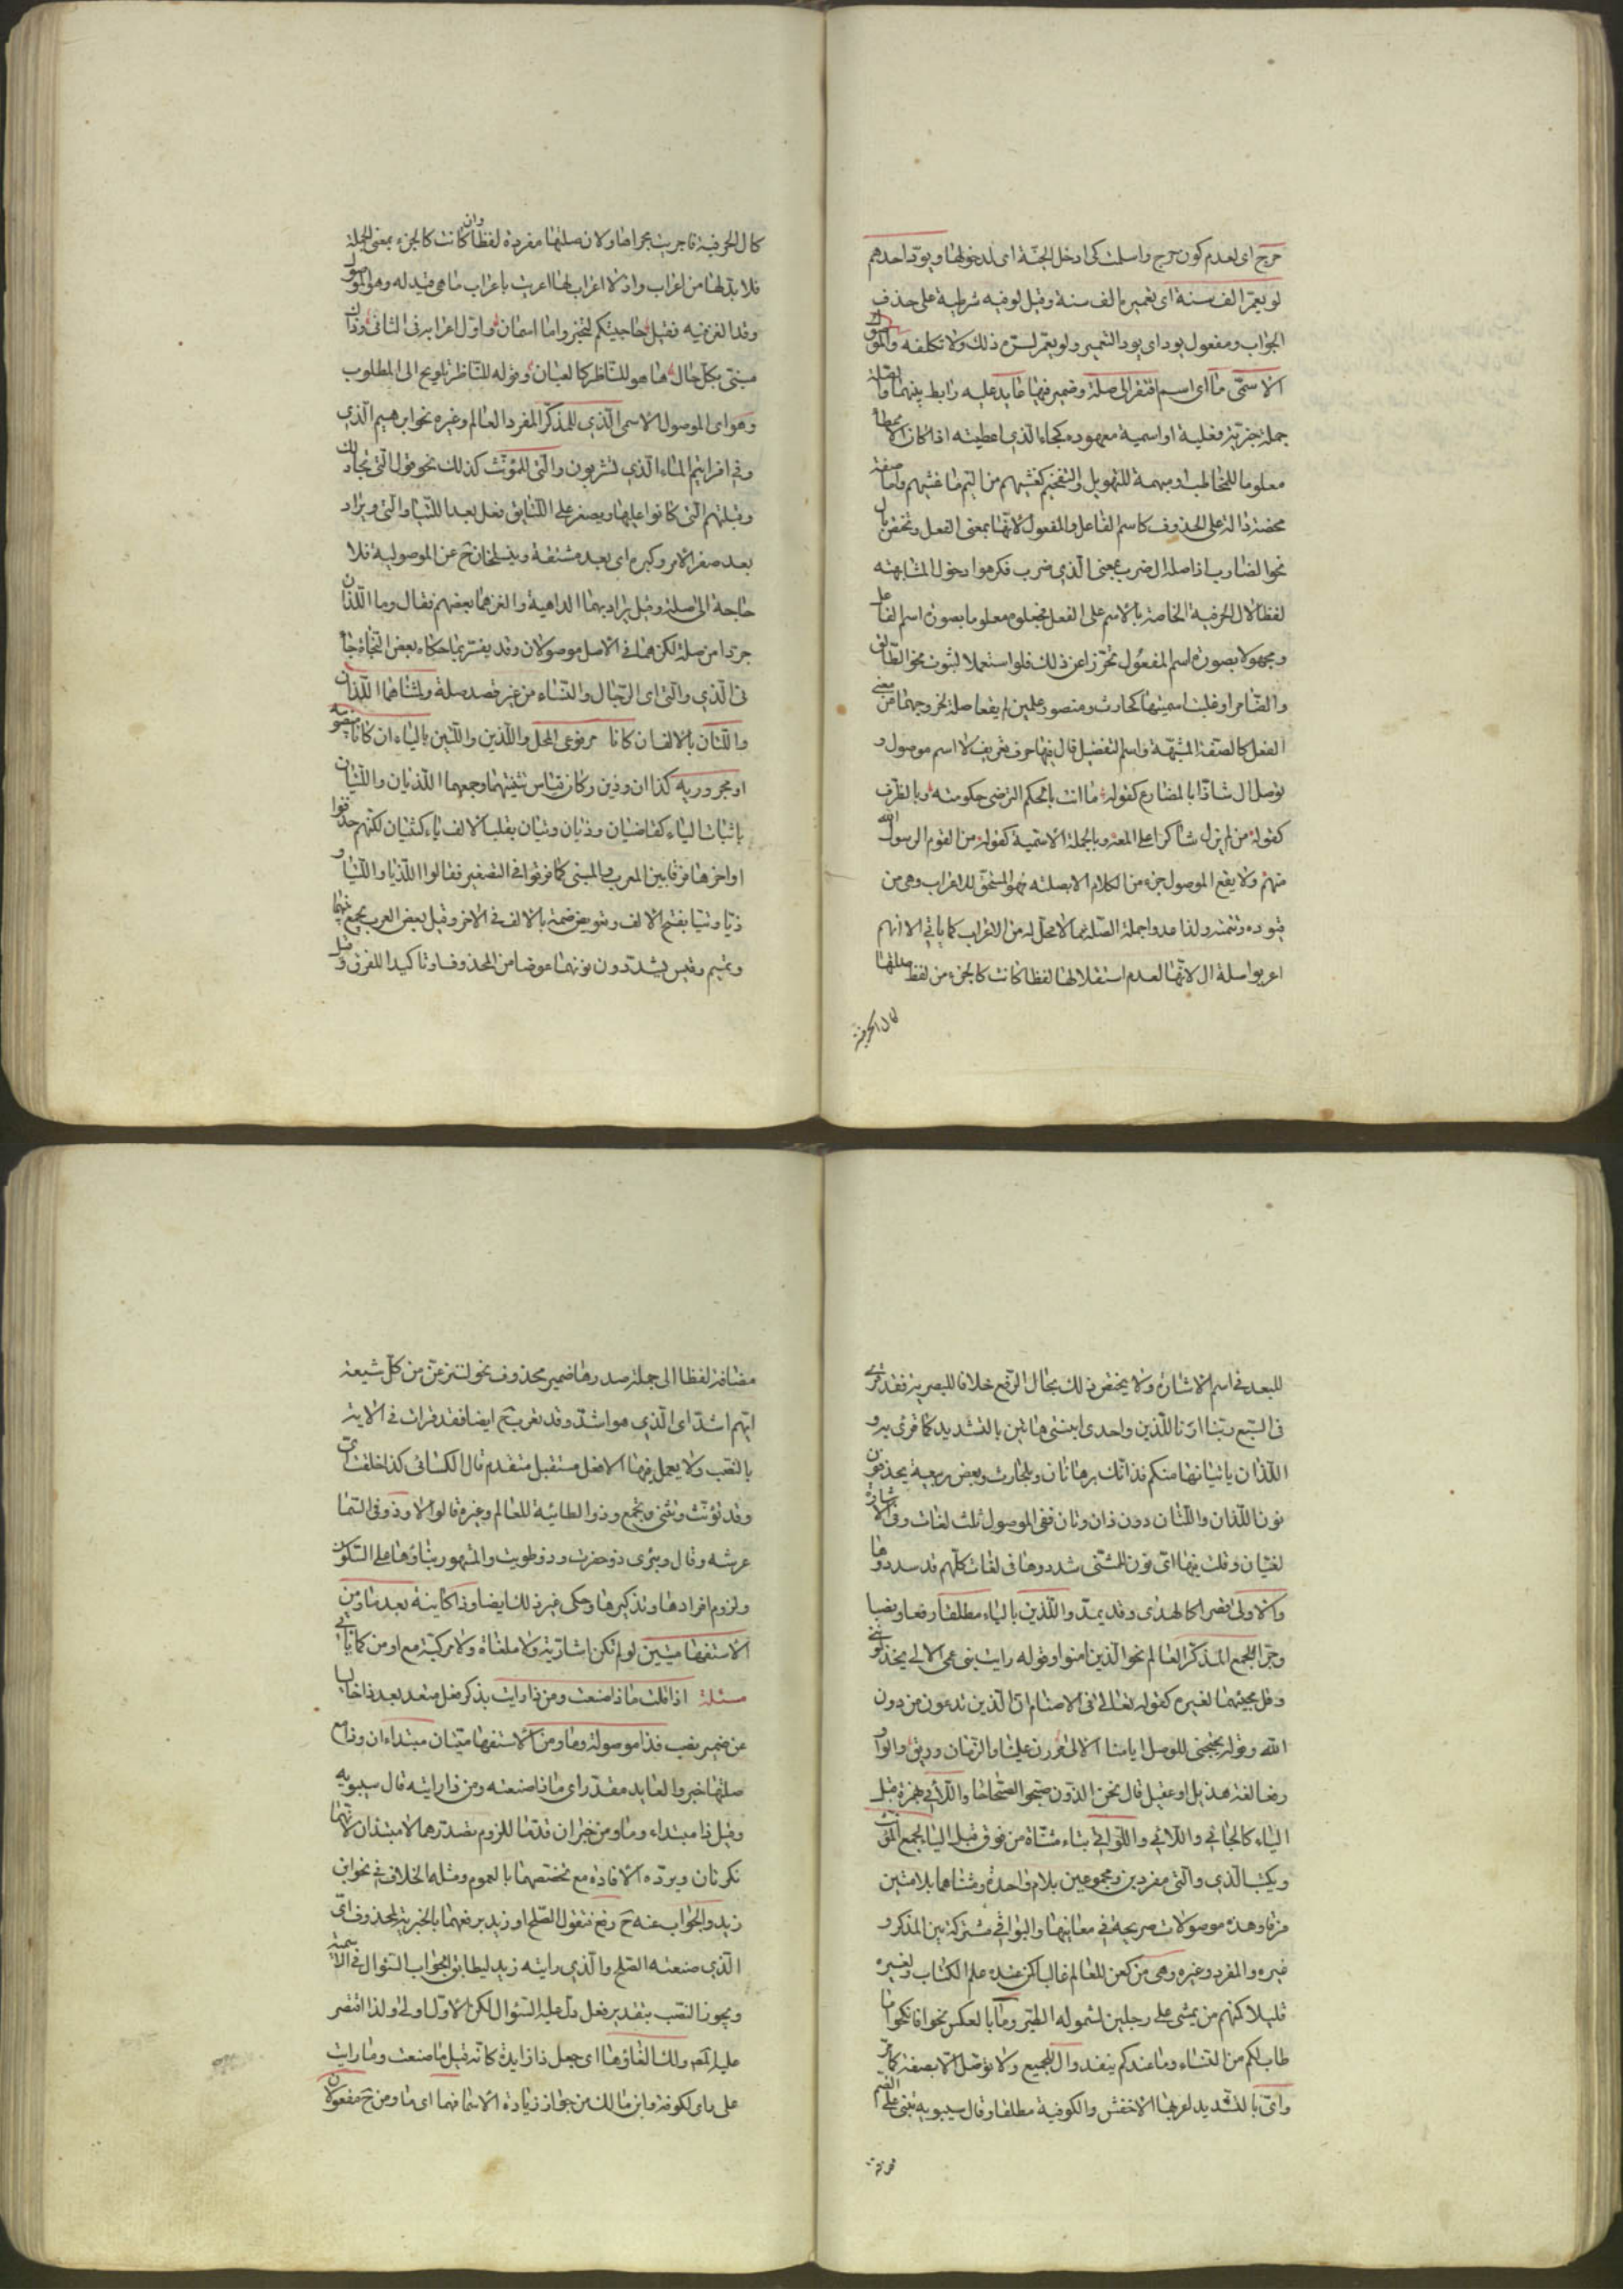 حرج اى لعدم كون حرج واسلمت كى ادخل الجنة اى لدخولها ويودّ احدهم
لو يعمّر الف سنة اى تعمير الف سنة وقيل لو فيه شرطية على حذف
الجواب ومفعول يود اى يود التعمير ولو يعمّر لسرّه ذلك ولا تكلفه والموصول
الاسمّى ما اى اسم افتقر الى صلة وضمير فيها عايد عليه رابط بينهما فالصلة
جملة خبرية فعلية او اسمية معهودة كجاء الذي اعطيته اذا كان الاعطاء
معلوما للمخاطب او مبهمة للتهويل والتفخيم كغشيهم من اليم ما غشيهم واما صفة
محضة دالة على الحذوف كاسم الفاعل والمفعول لانها بمعنى الفعل وتختص بال
نحو الضارب اذ اصله ال ضرب بمعنى الذي ضرب فكرهوا دخول المشابهته
لفظا لال الحرفية الخاصة بالاسم على الفعل فجعلوه معلوما بصورة اسم الفاعل
ومجهولا بصورة اسم المفعول تحرّزا عن ذلك فلو استعملا لثبوت نحو الطّالق
والضّامر او غلبت اسميتها كحارث ومنصور علمين لم يقعا صلة لخروجهما من معنى
الفعل كالصفة المشبّهة واسم التفضيل فال فيها حرف تعريف لا اسم موصول و
توصل ال شاذا بالمضارع كقوله ما انت بالحكم الترضى حكومته وبالظرف
كقوله من لم يزل شاكرا على المعه وبالجملة الاسمية كقوله من القوم الرسول الله
منهم ولا يقع الموصول جزء من الكلام الا بصلته فهو المستحق للاعراب وهى من
قيوده وتتمته ولذا عدوا جملة الصلة مما لا محل له من الاعراب كما ياتي الا انهم
اعربوا صلة ال لانها لعدم استقلالها لفظا كانت كالجزء من لفظ صلتها
كال الحرفية
كال الحرفية فاجريت مجراها ولان صلتها مفردة لفظا وان كانت كالجزء بمعنى الجملة
فلا بد لها من اعراب واذ لا اعراب لها اعربت باعراب ما هى قيد له وهى الموصول
وقد الغز فيه فقيل حاجيتكم لتخبروا ما اسمان واوّل اعرابه فى الثانى وذاك
مبنى بكل حال ها هو للناظر كالعيان وقوله للناظر تلويح الى المطلوب
وهو اى الموصول الاسمى الّذي للمذكّر المفرد العالم وغيره نحو ابرهيم الّذي
وفى افرايتم الماء الّذي تشربون والّتى للمؤنّث كذلك نحو قول الّتى تجادلك
وقبلتهم الّتى كانوا عليها ويصغر على اللّتيا فى فعل بعدا للّتيا والّتى ويراد
بعد صغر الامر وكبره اى بعد مشقة وينسلخان ح عن الموصولية فلا
حاجة الى صلة وقيل يراد بهما الداهية والغزهما بعضهم فقال وما اللّذان
جرّدا من صلة لكن هما فى الاصل موصولان وقد يفسّر بما حكاه بعض النّحاة جاء
نى الّذي والّتى اى الرّجال والنّساء من غير قصد صلة ولمثناهما اللّذان
واللّتان بالالف ان كانا مرفوعى المحل واللّذين واللّتين بالياء ان كانا منصوبيه
او مجروريه كذا ان وذين وكان قياس تثنيتهما وجمعهما اللّذيان واللّتيان
باثبات الياء كقاضيان وذيان وتيان بقلب الالف ياء كفتيان لكنّهم حذفوا
اواخرها فرقا بين المعرب والمبنى كما فرقوا فى التصغير فقالوا اللّذيا واللّتيا و
ذيّا وتيّا بفتح الالف وتعويض ضمة بالالف فى الاخر وقيل بعض العرب يجمع فيهما
وتميم وقيس يشدّدون نونهما عوضا من المحذوف او تاكيدا للفرق وقيل
للبعد فى اسم الاشارة ولا يختص ذلك بحال الرفع خلافا للبصرية فقد قرئ
فى السّبع ربّنا ارنا اللّذين واحدى ابنتى هاتين بالتشديد كما قرئ به و
اللّذان ياتيانها منكم فذانك برهانان وبلحارث وبعض ربيعة يحذفون
نون اللّذان واللّتان دون ذان وتان ففى الموصول ثلث لغات وفى الاشارة
لغتيان وقلت فيها اتى نون المثنّى شددوها فى لغات كلّهم قد سددوها
والاولى قصرا كالهدى وقد يمدّ والّلذين بالياء مطلقا رفعا ونصبا
وجرّا للجمع المذكّر العالم نحو الّذين امنوا وقوله رايت بنى عمى الالى يخذلونني
وقل مجيئهما لغيره كقوله تعالى فى الاصنام انّ الّذين تدعون من دون
الله وقوله يهيجنى للوصل ايامنا الالى مررن علينا والزمان وريق والواو
رفعا لغة هذيل او عقيل قال نحن الّذون صبحوا الصّباحا واللّائي بهمزة قبل
الياء كالجائي واللّاتي واللّواتي بتاء مثنّاة من فوق قبل الياء لجمع المؤنث
ويكتب الّذي والّتى مفردين ومجموعين بلام واحدة ومثناهما بلامين
فرقا وهذه موصولات صريحة فى معانيها والبواقي مشتركة بين المذكر و
غيره والمفرد وغيره وهى من كعن للعالم غالبا كمن عنده علم الكتاب ولغيره
قليلا كمنهم من يمشى على رجلين لشموله الطير وما بالعكس نحو فانكحوا ما
طاب لكم من النّساء وما عندكم ينفد وال للجميع ولا توصل الّا بصفة كما مرّ
واىّ بالتشديد لعربها الاخفش والكوفية مطلقا وقال سيبويه تبنى على الضم
مضافة لفظا الى جملة صدرها ضمير محذوف نحو لننزعنّ من كل شيعة
ايّهم اشدّ اى الّذي هو اشدّ وقد تعرب ح ايضا فقد قرات فى الاية
بالنّصب ولا يعمل فيها الا فعل مستقبل متقدم قال الكسائى كذا خلقت اىّ
وقد تؤنّث وتثنى وتجمع وذو الطائية للعالم وغيره قالوا لا وذو فى السّما
عرشه وقال وبئرى ذو حفرت وذو طويت والمشهور بناؤها على السّكون
ولزوم افرادها وتذكيرها وحكى غير ذلك ايضا وذا كاينة بعد ما ومن
الاستفهاميتين لو لم تكن اشارية ولا ملغاة ولا مركبّة مع او من كما ياتى
مسئلة اذا قلت ما ذا صنعت ومن ذا رايت بذكر فعل متعد بعد ذا خاليا
عن ضمير نصب فذا موصولة وما ومن الاستفهاميّتان مبتداءان وذا مع
صلتها خبر والعايد مقدّر اى ما ذا صنعته ومن ذا رايته قال سيبويه
وقيل ذا مبتداء وما ومن خبران قدّما للزوم تصدّرها لا مبتدان لانهما
نكرتان ويردّه الافادة مع تخصّصهما بالعموم ومثله الخلاف فى نحو اين
زيد والجواب عنه ح رفع فتقول الصّلح او زيد برفعهما بالخبرية لمحذوف اى
الّذي صنعته الصّلح والّذي رايته زيد ليطابق الجواب السّؤال فى الاسمية
ويجوز النّصب بتقدير فعل دلّ عليه السّؤال لكن الاوّل اولى ولذا اقتصر
عليه المص ولك الغاؤها اى جعل ذا زايدة كانّه قيل ما صنعت وما رايت
على راى الكوفة وابن مالك من جواز زيادة الاسما فهما اى ما ومن ح مفعولان